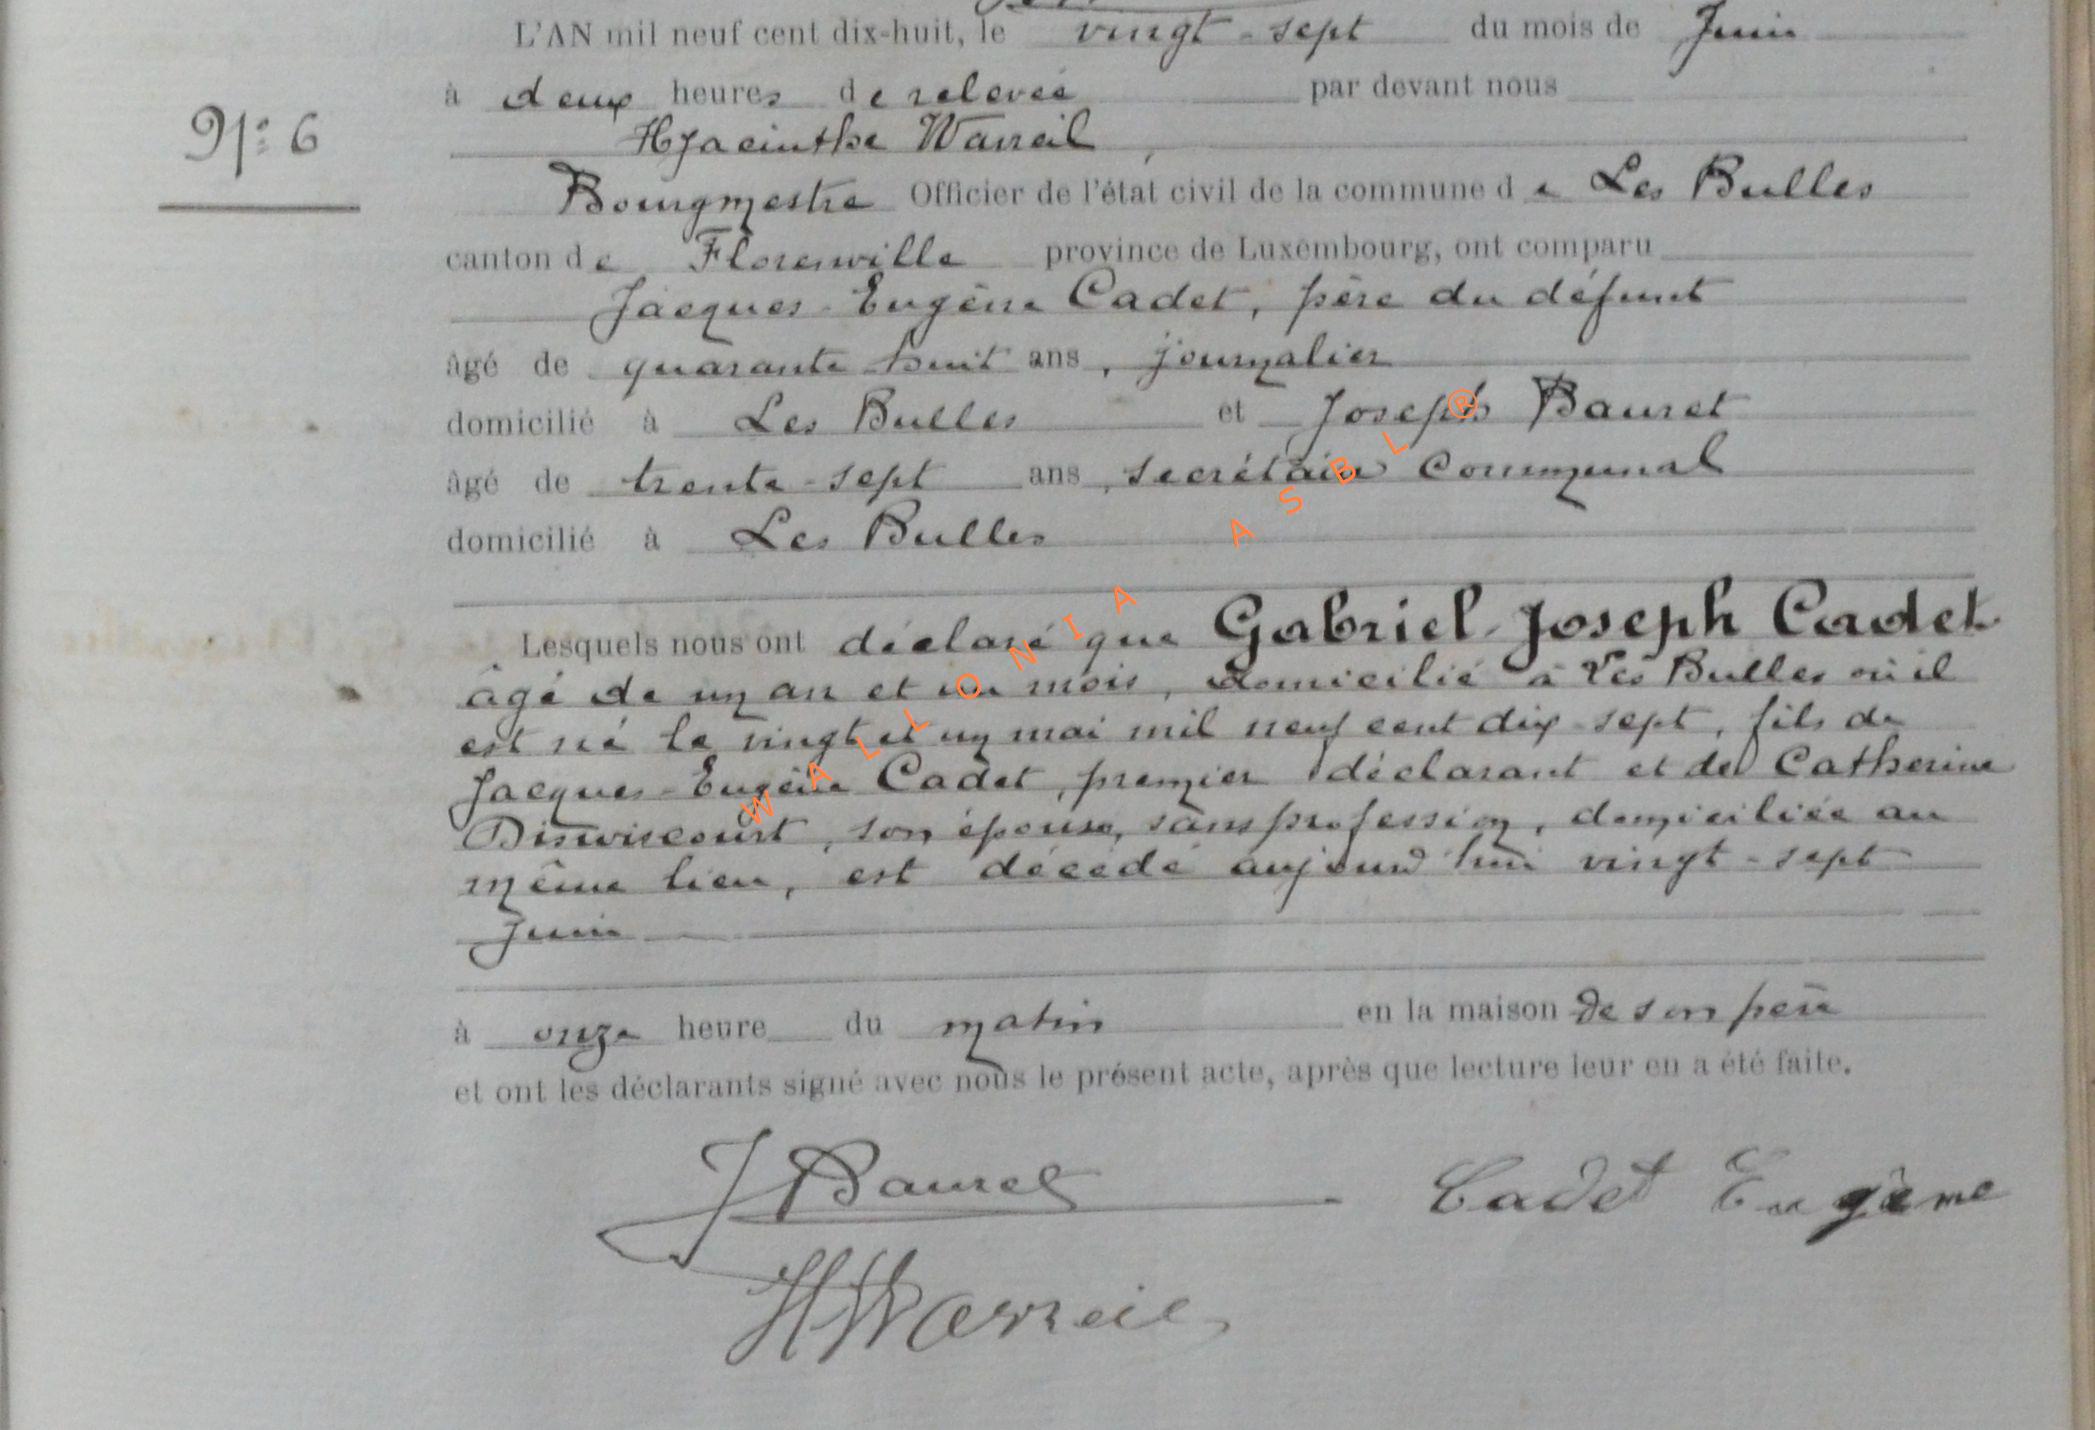 L'AN mil neuf cent dix-huit, le vingt-sept du mois de Juin
à deux heures de relevée par devant nous
N° 6
Hyacinthe Warreil,
Bourgmestre Officier de l'état civil de la commune de Les Bulles
canton de Florenville province de Luxembourg, ont comparu
Jacques-Eugène Cadet, père du défunt
âgé de quarante-huit ans, journalier
domicilié à Les Bulles et Joseph Bauret
âgé de trente-sept ans, secrétaire communal
domicilié à Les Bulles
Lesquels nous ont déclaré que Gabriel-Joseph Cadet
âgé de un an et un mois, domicilié à Les Bulles où il
est né le vingt et un mai mil neuf cent dix-sept, fils de
Jacques-Eugène Cadet, premier déclarant et de Catherine
Disviscourt, son épouse, sans profession, domiciliée au
même lieu, est décédé aujourd'hui vingt-sept
Juin
à onze heure du matin en la maison de son père
et ont les déclarants signé avec nous le présent acte, après que lecture leur en a été faite.
J Bauret Cadet Eugène
H Warreil
WALLONIA ASBL ®